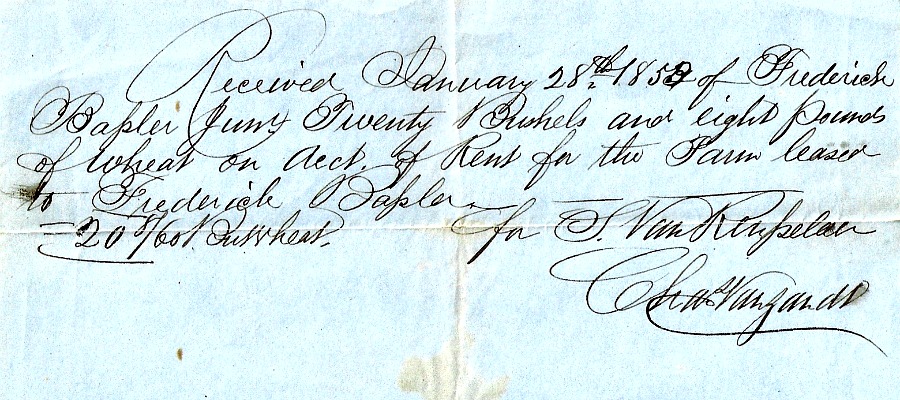 Received January 28th 1852 of Frederick
Bassler Junr Twenty Bushels and eight pounds
of Wheat on Acct. of Rent for the Farm leased
to Frederick Bassler
20 8/60 Bu Wheat. for S. Van Rensselaer
Chas Vanzandt